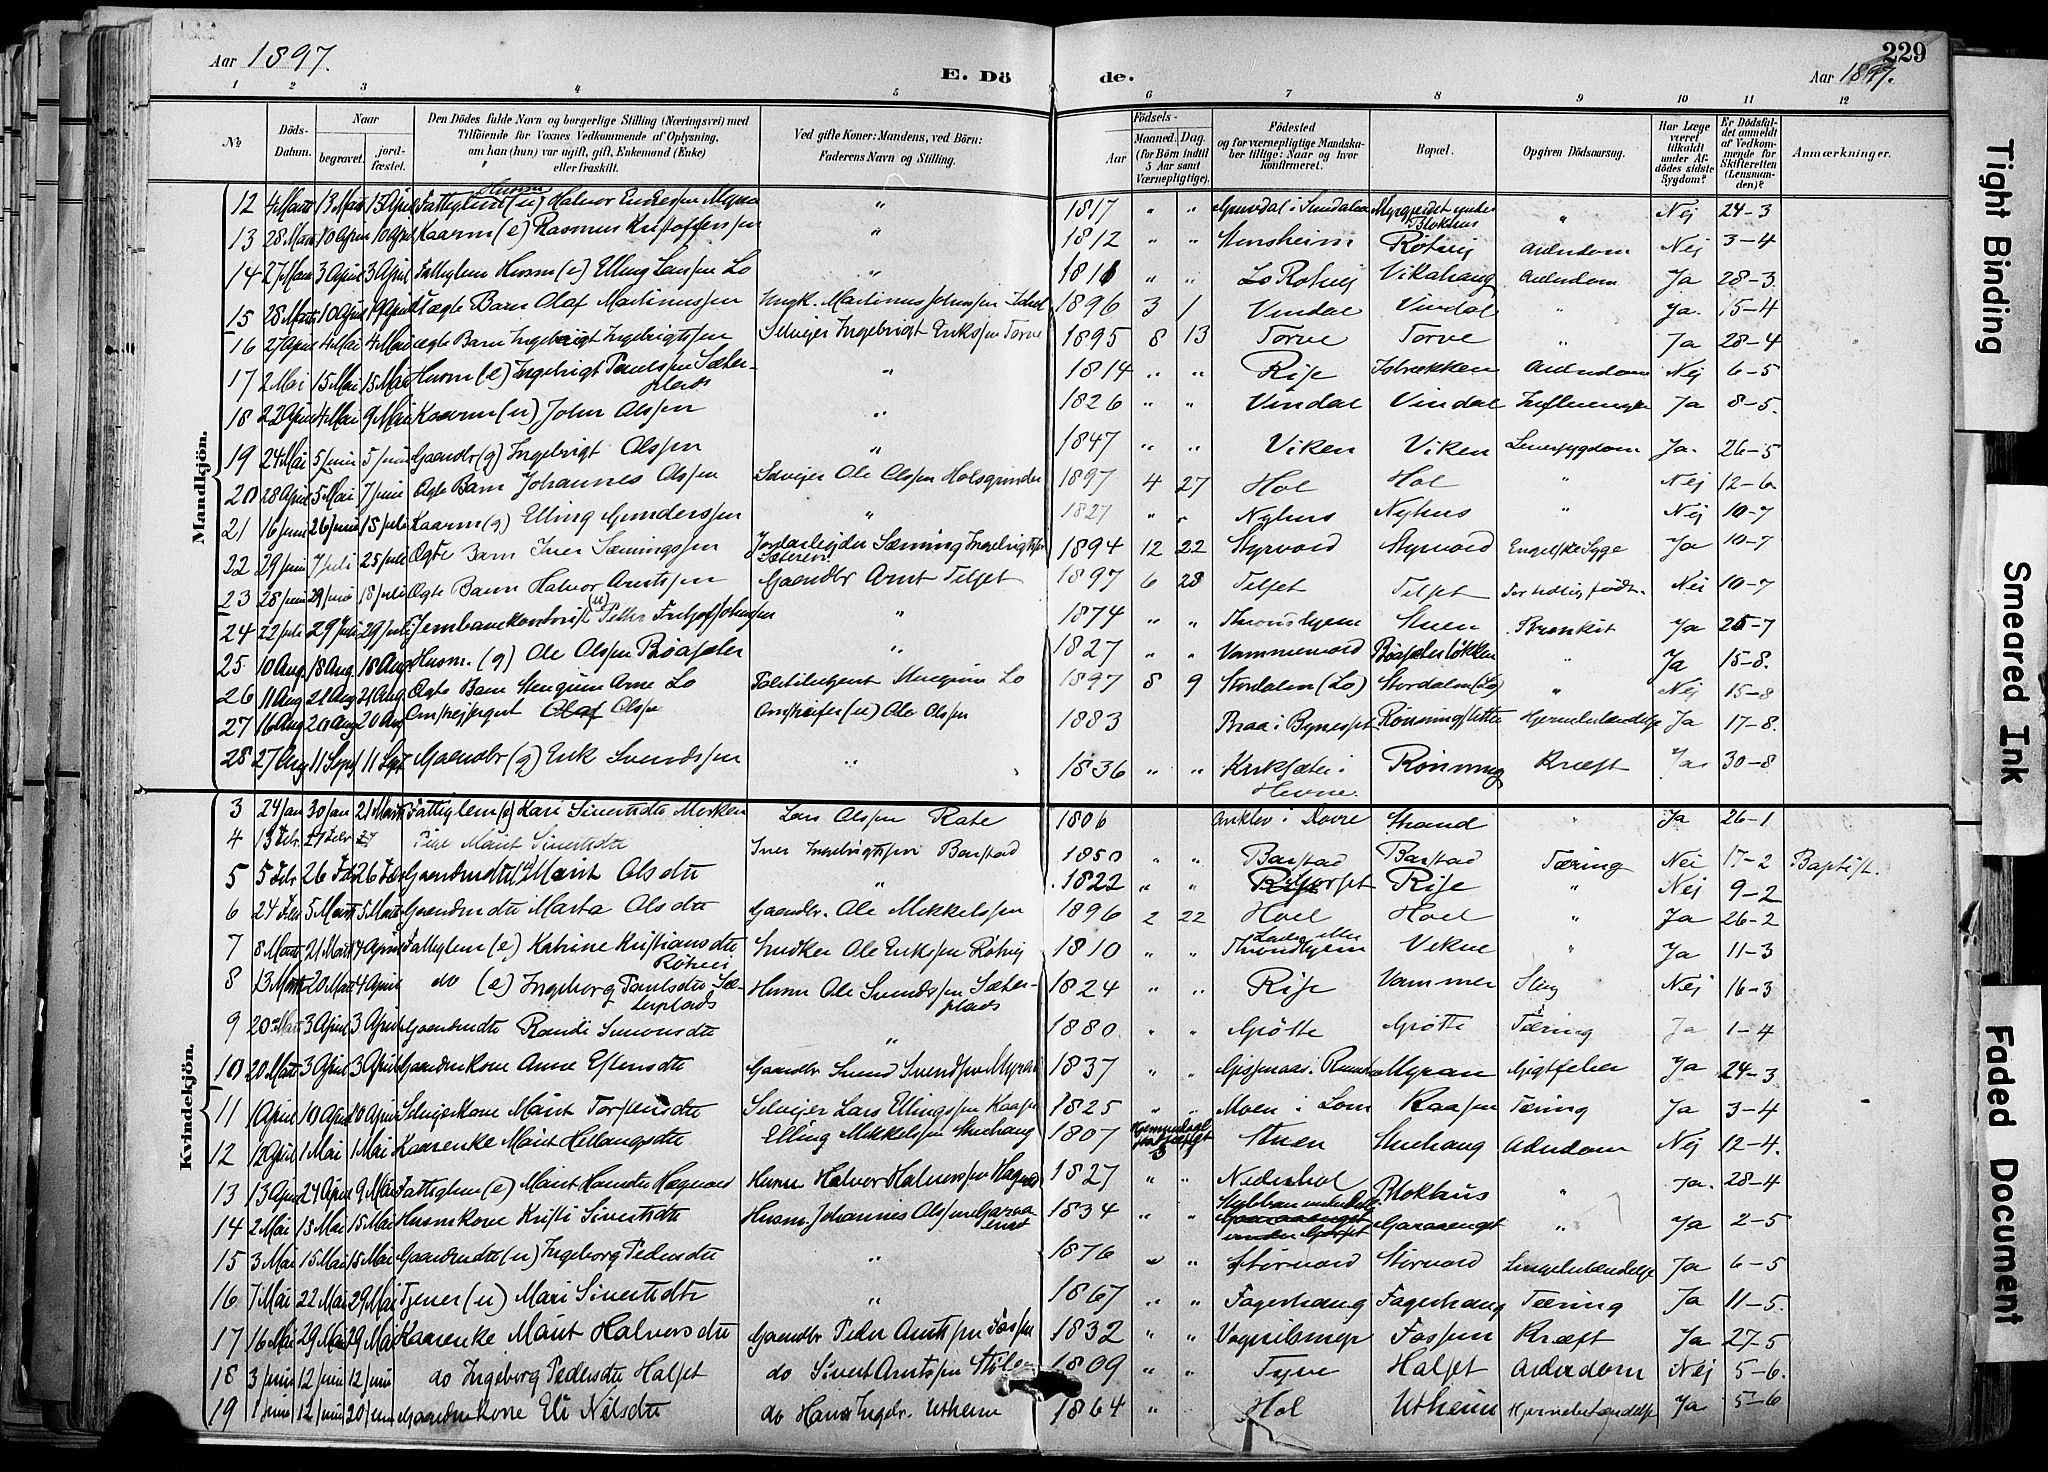 229
Aar 1897.
E. Dö de.
Aar 1897.
1 2 3 4 5 6 7 8 9 10 11 12
No
Döds-Datum.
Naar
begravet.
jord-fæstet.
Den Dödes fulde Navn og borgerlige Stilling (Næringsvei) med Tilföiende for Voxnes Vedkommende af Oplysning, om han (hun) var ugift, gift, Enkemand (Enke) eller fraskilt.
Ved gifte Koner: Mandens, ved Börn: Faderens Navn og Stilling.
Födsels-
Aar
Maaned. Dag. (for Börn indtil 5 Aar samt Værnepligtige).
Födested og for værnepligtige Mandskaber tillige: Naar og hvor konfirmeret.
Bopæl.
Opgiven Dödsaarsag.
Har Læge været tilkaldt under Afdödes sidste Sygdom?
Er Dödsfaldet anmeldt af Vedkommende for Skifteretten (Lensmanden)?
Anmærkninger.
Mandkjön.
12 4 Marts 13 Mar 13 April Fattiglem (u) Husm Halvor Endresen " 1817 " " i Sundalen under Blokhus " Nej 24-3
13 28 Mar 10 April 10 April Kaarm (e) Rasmus Kristoffersen " 1812 " " Stensheim Røtvej Alderdom Nej 3-4
14 27 Mar 3 April 3 April Fattiglem Husm (e) Elling Larssen Lo " 1811 " " Lo Rotvej Vikahaug Alderdom Ja 28-3
15 28 Marts 10 April 19 April Ægte Barn Olaf Martinussen Ungk. Martinus Johnssen 1896 3 1 Vindal Vindal " Ja. 5-4
16 27 April 4 Mai 4 Mai Ægte Barn Ingebrigt Ingebrigtssen Selvejer Ingebrigt Erikssen Torve 1895 8 13 Torve Torve " Ja 28-4
17 2 Mai 15 Mai 15 Mai Husm (e) Ingebrigt Paulssen Sæterplads " 1814 " " Rise Alderdom Nej 6-5
18 22 April 4 Mai 9 Mai Kaarm (u) John Olssen " 1826 " " Vindal Vindal Influenza Ja 8-5.
19 24 Mai 5 Juni 5 Juni Gaardbr (g) Ingebrigt Olssen " 1847 " " Viken Viken Leversygdom Ja. 26-5
20 28 April 5 Mai 7 Juni Ægte Barn Johannes Olssen Selvejer Ole Olssen Holsgrinden 1897 4 27 Hol Hol " Nej 12-6
21 16 Juni 26 Juni 18 Juli Kaarm (g) Elling Gunderssen " 1827 " " Nyhus Nyhus " Nej 10-7
22 29 Juni 7 Juli 25 Juli Ægte Barn Iver Sæmingssen Jordarbejder Sæming Ingebrigtssen Sæteren 1894 12 22 Styrvold Styrvold Engelske Syge Ja 10-7
23 28 Juni 29 Juni 18 Juli Ægte Barn Halvor Arntssen Gaardbr Arnt Tilset 1897 6 28 Tilset Tilset For tidlig født. Nei 10-7
24 22 Juli 29 Juli 29 Juli Jernbanekontorist (u) Peter Fritjof Johansen " 1874 " " Throndhjem Stuen Bronkit Ja 25-7
25 10 Aug. 18 Aug. 18 Aug Husm. (g) Ole Olssen Bøasæter " 1827 " " Vammervold Bøasæterløkken " Ja 15-8.
26 11 Aug 21 Aug 21 Aug Ægte Barn Stengrim Arne Lo Stengrim Lo 1897 8 9 Stordalen (Lo) Stordalen (Lo) " Nej 15-8
27 16 Aug 20 Aug 20 Aug Omstrejfergut Olaf Olsen Omstreifer (u) Ole Olssen 1883 Braa i Bynesset Rønningsletten Hjernebetændelse Ja 17-8.
28 27 Aug 11 Sept 11 Sept Gaardbr (g) Erik Svendssen " 1836 " " Kirksæter i Hevne. Rønning Kræft Ja 30-8
Kvindekjön.
3 24 Jan 30 Jan 21 Marts Fattiglem (e) Kari Sivertsdtr Merken Lars Olssen Rate 1806 i Dovre Strand " Ja 26-1
4 13 Febr. 27 Febr. Pige Marit Sivertsdtr Iver Ingebrigtssen Barstad 1850 " " Barstad Barstad Tæring Nei 17-2 Baptist.
5 5 Febr 26 Feb 26 Feb Gaardmdtr (u) Marit Olsdtr " 1822 " " Gorset Rise " Nej 9-2
6 24 Febr 5 Marts 5 Marts Gaardmdtr Marta Olsdtr Gaardbr. Ole Mikkelssen 1896 2 22 Hoel Hoel " Ja 26-2
7 8 Marts 21 Marts 4 April Fattiglem (e) Katrine Kristiansdtr Røtvei Snedker Ole Erikssen Røtvej 1810 " " Lade eller Throndhjem Vekve " Ja 11-3
8 13 Marts 20 Marts 4 April do (e) Ingeborg Paulsdtr Sæterplads Husm Ole Svendssen Sæterplads 1824 " " Rise Vammer Slag Nej 16-3
9 20de Marts 3 April 3 April Gaardmdtr Randi Simonsdtr " 1880 " " Grøtte Grøtte Tæring Ja 1-4
10 20 Marts 3 April 3 April Gaardmkone Anne Estensdtr Gaardbr Svend Svendssen Myran 1837 " " Gisnaas. Rennebu Myran Gigtfeber Ja 24-3
11 1 April 10 April 10 April Selvejerkone Marit Torstensdtr Selvejer Lars Ellingssen Kaasen 1825 " " Moen i Lom Kaasen Tæring Ja 3-4
12 12 April 1 Mai 1 Mai Kaarenke Marit Hellangsdtr Elling Mikkelssen Stuehaug 1807 Stuen Stuehaug Alderdom Nej 12-4.
13 13 April 24 April 9 Mai Fattiglem (e) Marit Hansdtr Hægvold Husm Halvor Halvorssen 1827 " " Nederhol Blokhus " Ja. 28-4
14 2 Mai 15 Mai 15 Mai Husmkone Kristi Sivertsdtr Husm. Johannes Olssen Garaaenget 1834 " " Garaaenget " Ja 2-5
15 3 Mai 15 Mai 15 Mai Gaardmdtr (u) Ingeborg Pedersdtr " 1876 " " Størvold Størvold Lungebetændelse Ja 6-5
16 7 Mai 22 Mai 29 Mai Tjener (u) Mari Sivertsdtr " 1867 " " Fagerhaug Fagerhaug Tæring Ja 11-5.
17 16 Mai 29 Mai 29 Mai Kaarenke Marit Halvorsdtr Gaardbr Peder Arntssen Fossen 1832 " " Fossen Kræft Ja 27-5
18 3 Juni 12 Juni 12 Juni do Ingeborg Pedersdtr Halset do Sivert Arntssen 1809 " " Tyve Halset Alderdom Nej 5-6.
19 1 Juni 12 Juni 20 Juni Gaardmkone Eli Nilsdtr do Hans Ingbr. Utheim 1864 " Hol Utheim Hjernebetændelse Ja 5-6
Tight Binding
Smeared Ink
Faded Document